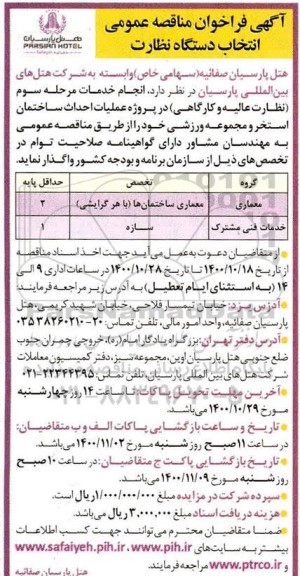 آگهی فراخوان مناقصه عمومی
انتخاب دستگاه نظارت
هتل پارسیان
PARSIAN HOTEL
هتل پارسیان صفائیه (سهامی خاص) وابسته به شرکت هتل‌های
بین‌المللی پارسیان در نظر دارد، انجام خدمات مرحله سوم
(نظارت عالیه و کارگاهی) در پروژه عملیات احداث ساختمان
استخر و مجموعه ورزشی خود را از طریق مناقصه عمومی
به مهندسان مشاور دارای گواهینامه صلاحیت توام در
تخصص‌های ذیل از سازمان برنامه و بودجه کشور واگذار نماید.
گروه تخصص حداقل پایه
معماری معماری ساختمان‌ها (با هر گرایشی) ۲
خدمات فنی مشترک سازه ۱
از متقاضیان دعوت به عمل می‌آید جهت اخذ اسناد مناقصه
از تاریخ ۱۴۰۰/۱۰/۱۸ تا تاریخ ۱۴۰۰/۱۰/۲۸ در ساعات اداری ۹ الی
۱۴ (به استثنای ایام تعطیل) به آدرس زیر مراجعه فرمایند:
آدرس یزد: خیابان تیمسار فلاحی، خیابان شهید کریمی، هتل
پارسیان صفائیه، واحد امور مالی، تلفن تماس: ۲۰-۰۳۵۳۸۲۶۰۲۱۰
آدرس دفتر تهران: بزرگراه یادگار امام (ره)، خروجی چمران جنوب
ضلع جنوبی هتل پارسیان اوین، مجموعه سبز، دفتر کمیسیون معاملات
شرکت هتل های بین المللی پارسیان تلفن تماس: ۲۲۳۴۴۳۹۵-۰۲۱
آخرین مهلت تحویل پاکات تا ساعت ۱۴ روز چهارشنبه
مورخ ۱۴۰۰/۱۰/۲۹ می‌باشد.
تاریخ و ساعت بازگشایی پاکات الف و ب متقاضیان:
در ساعت ۱۱ صبح روز شنبه مورخ ۱۴۰۰/۱۱/۰۲ می‌باشد.
تاریخ بازگشایی پاکت ج متقاضیان: در ساعت ۱۰ صبح
روز شنبه مورخ ۱۴۰۰/۱۱/۰۹ می‌باشد.
سپرده شرکت در مزایده مبلغ ۱/۰۰۰/۰۰۰/۰۰۰ ریال است.
هزینه دریافت اسناد مبلغ ۳,۰۰۰,۰۰۰ ریال می‌باشد.
ضمنا متقاضیان محترم می‌توانند جهت کسب اطلاعات
بیشتر به سایت‌های www.pih.ir ، www.safaiyeh.pih.ir
و www.ptrco.ir مراجعه فرمایند.
هتل پارسیان صفائیه